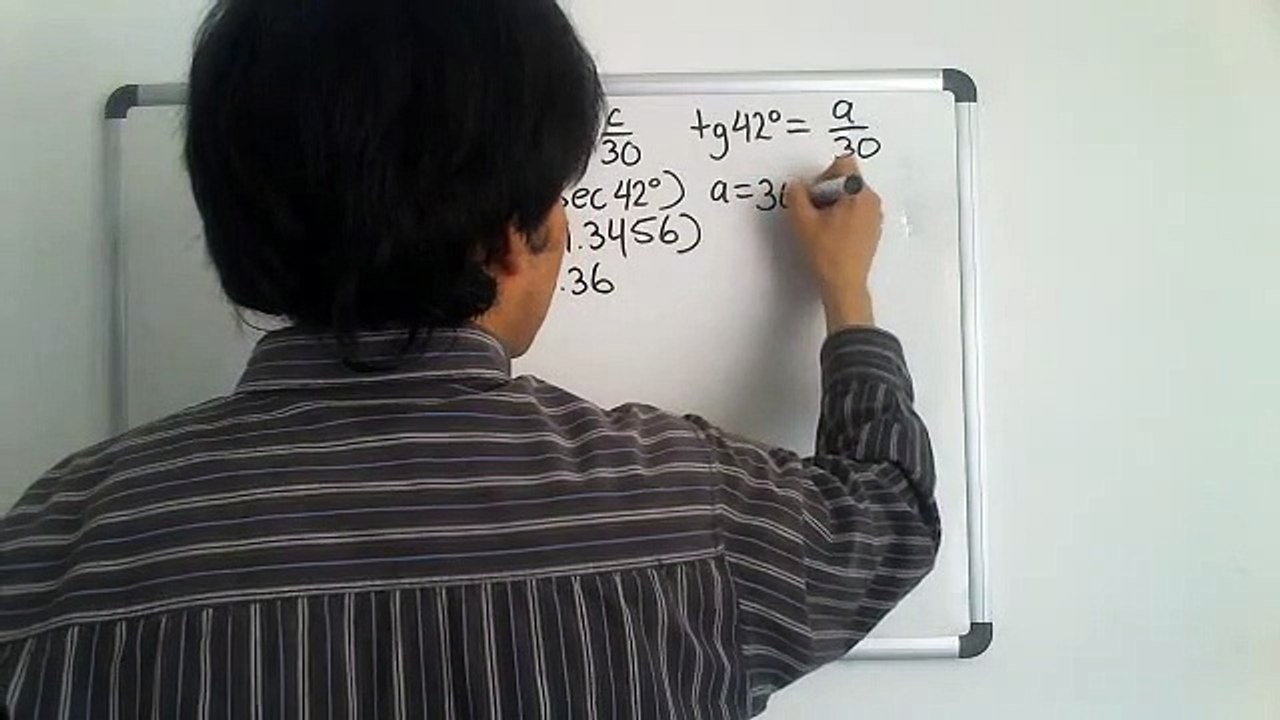 c/30 tg42°= a/30
sec 42°) a=30
1.3456)
.36